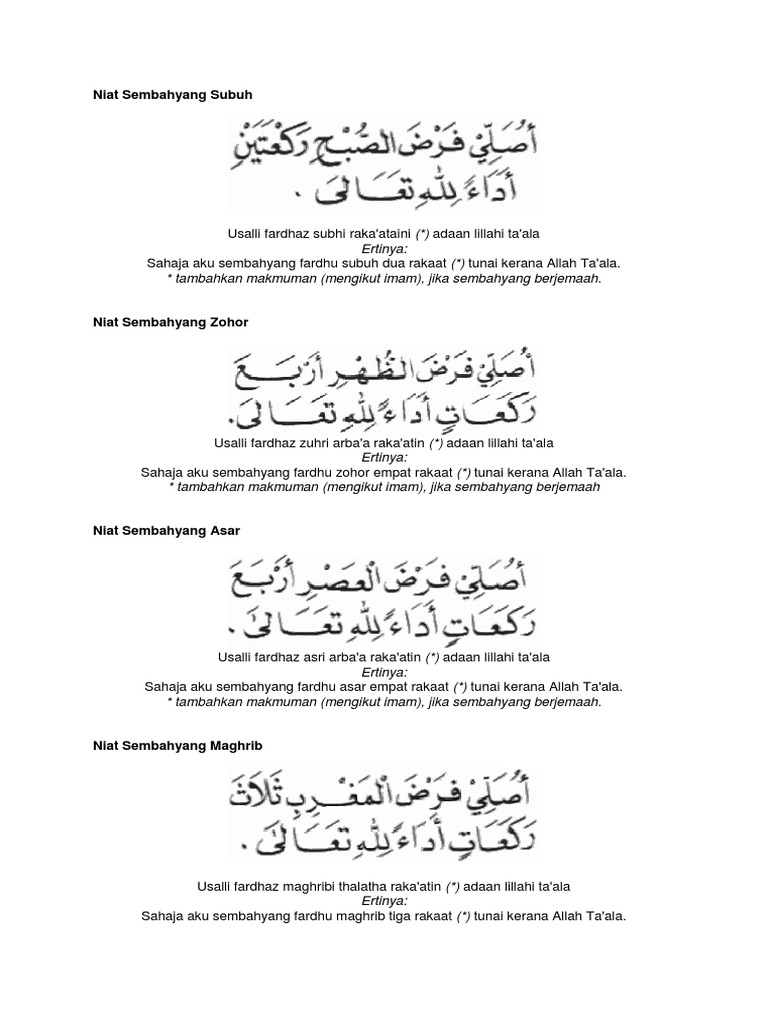 Niat Sembahyang Subuh
أُصَلِّيْ فَرْضَ الصُّبْحِ رَكْعَتَيْنِ
أَدَاءً لِلّٰهِ تَعَالَىَ .
Usalli fardhaz subhi raka'ataini (*) adaan lillahi ta'ala
Ertinya:
Sahaja aku sembahyang fardhu subuh dua rakaat (*) tunai kerana Allah Ta'ala.
* tambahkan makmuman (mengikut imam), jika sembahyang berjemaah.
Niat Sembahyang Zohor
أُصَلِّيْ فَرْضَ الظُّهْرِ أَرْبَعَ
رَكَعَاتٍ أَدَاءً لِلّٰهِ تَعَالَىَ.
Usalli fardhaz zuhri arba'a raka'atin (*) adaan lillahi ta'ala
Ertinya:
Sahaja aku sembahyang fardhu zohor empat rakaat (*) tunai kerana Allah Ta'ala.
* tambahkan makmuman (mengikut imam), jika sembahyang berjemaah
Niat Sembahyang Asar
أُصَلِّيْ فَرْضَ الْعَصْرِ أَرْبَعَ
رَكَعَاتٍ أَدَاءً لِلّٰهِ تَعَالَىَ .
Usalli fardhaz asri arba'a raka'atin (*) adaan lillahi ta'ala
Ertinya:
Sahaja aku sembahyang fardhu asar empat rakaat (*) tunai kerana Allah Ta'ala.
* tambahkan makmuman (mengikut imam), jika sembahyang berjemaah.
Niat Sembahyang Maghrib
أُصَلِّيْ فَرْضَ الْمَغْرِبِ ثَلَاثَ
رَكَعَاتٍ أَدَاءً لِلّٰهِ تَعَالَىَ .
Usalli fardhaz maghribi thalatha raka'atin (*) adaan lillahi ta'ala
Ertinya:
Sahaja aku sembahyang fardhu maghrib tiga rakaat (*) tunai kerana Allah Ta'ala.